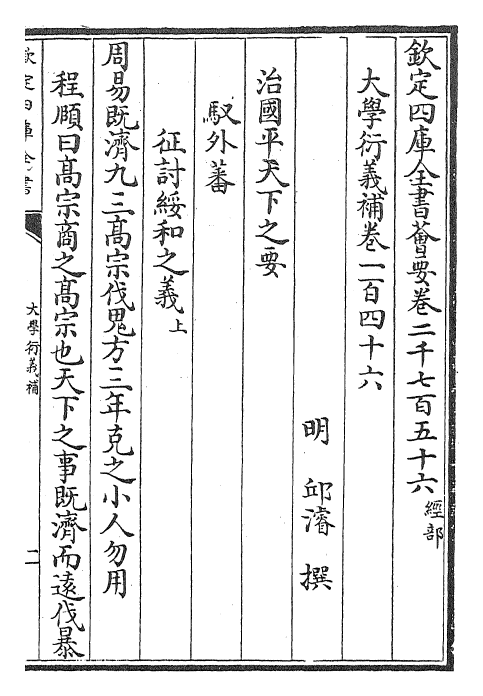 欽定四庫全書薈要卷二千七百五十六 經部
大學衍義補卷一百四十六
明 邱濬 撰
治國平天下之要
馭外蕃
征討綏和之義上
周易既濟九三高宗伐鬼方三年克之小人勿用
程頤曰髙宗商之髙宗也天下之事既濟而遠伐暴
欽定四庫全書
大學衍義補
二